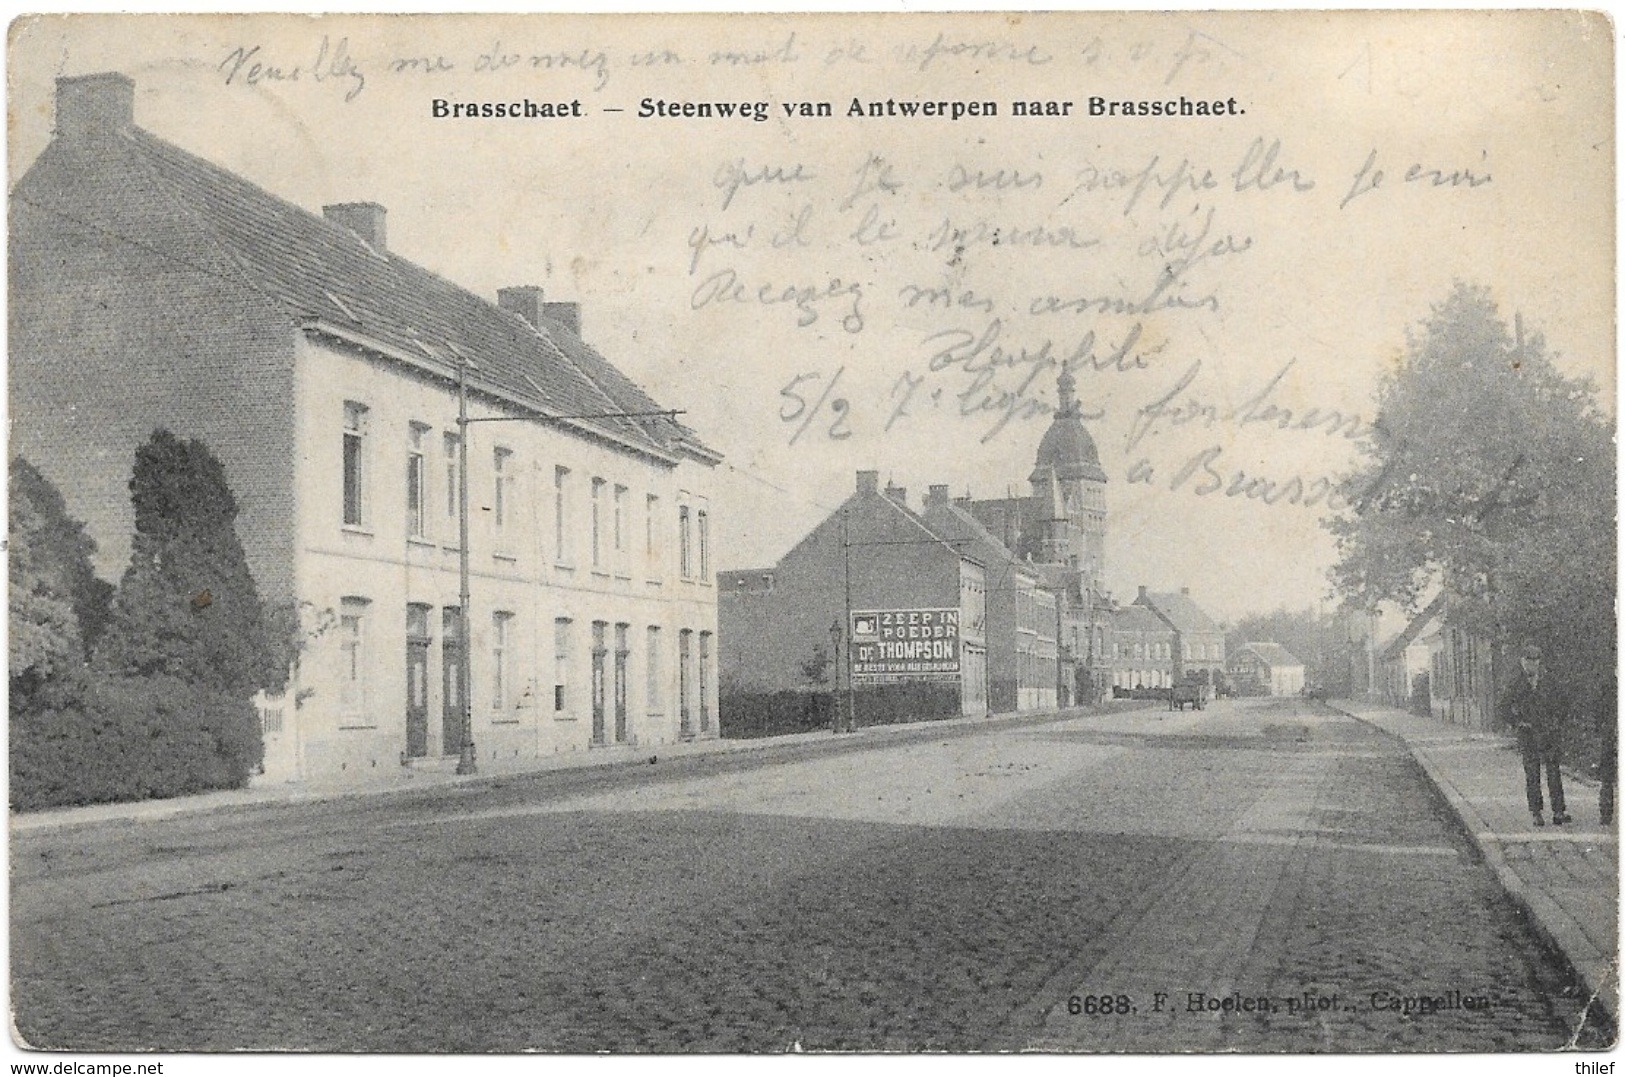 Veuillez me donnez un mot de reponse s. v. p.
Brasschaet. — Steenweg van Antwerpen naar Brasschaet.
que je suis rappeller je crois
qu'il le saura déja
Recevez mes amitiés
5/2 7e ligne
a Brasschaet
ZEEP IN
POEDER
Dr THOMPSON
DE BESTE VOOR
6688. F. Hoelen, phot., Cappellen.
www.delcampe.net
thilef